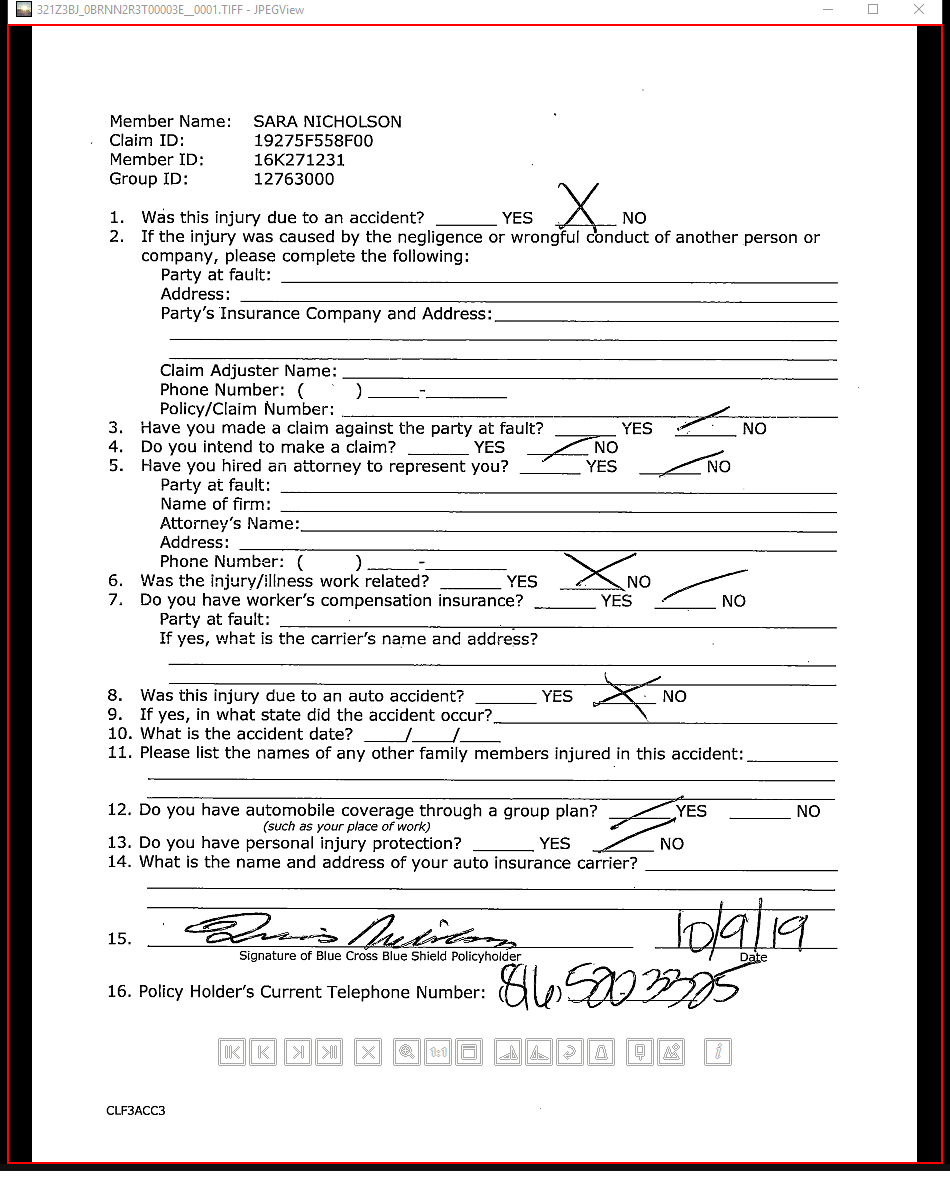 321Z3BJ_0BRNN2R3T00003E__0001.TIFF - JPEGView
Member Name: SARA NICHOLSON
Claim ID: 19275F558F00
Member ID: 16K271231
Group ID: 12763000
1. Was this injury due to an accident? ______ YES ___X___ NO
2. If the injury was caused by the negligence or wrongful conduct of another person or
company, please complete the following:
Party at fault:
Address:
Party's Insurance Company and Address:
Claim Adjuster Name:
Phone Number: ( ) ______-________
Policy/Claim Number:
3. Have you made a claim against the party at fault? ______ YES ______ NO
4. Do you intend to make a claim? ______ YES ______ NO
5. Have you hired an attorney to represent you? ______ YES ______ NO
Party at fault:
Name of firm:
Attorney's Name:
Address:
Phone Number: ( ) ______-________
6. Was the injury/illness work related? ______ YES ___X___ NO
7. Do you have worker's compensation insurance? ______ YES ______ NO
Party at fault:
If yes, what is the carrier's name and address?
8. Was this injury due to an auto accident? ______ YES ___X___ NO
9. If yes, in what state did the accident occur?
10. What is the accident date? ____/____/____
11. Please list the names of any other family members injured in this accident:
12. Do you have automobile coverage through a group plan? ______ YES ______ NO
(such as your place of work)
13. Do you have personal injury protection? ______ YES ______ NO
14. What is the name and address of your auto insurance carrier?
15. Nicholson 10/9/19
Signature of Blue Cross Blue Shield Policyholder Date
16. Policy Holder's Current Telephone Number: (816) 520 3325
1:1
i
CLF3ACC3